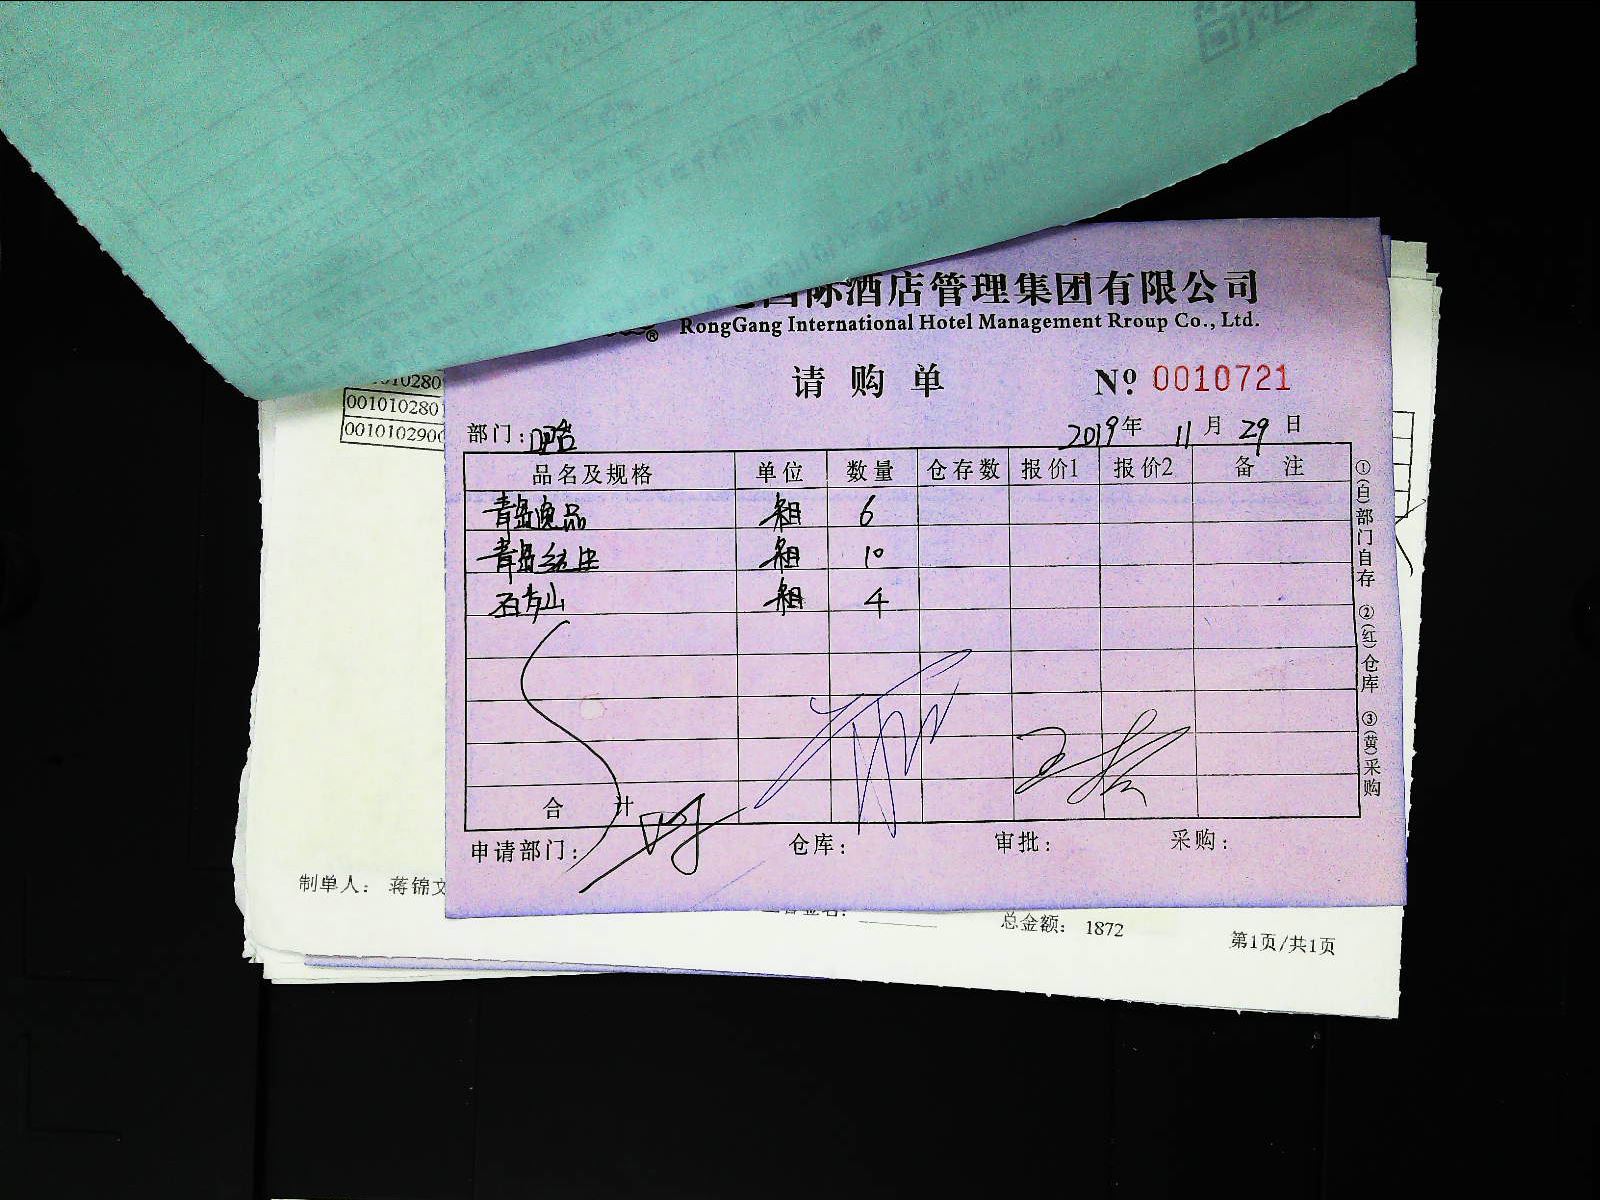 国际酒店管理集团有限公司
RongGang International Hotel Management Rroup Co., Ltd.
®
请购单
Nº 0010721
部门: 吧台
2019年 11月 29日
品名及规格 单位 数量 仓存数 报价1 报价2 备注
青岛逸品 箱 6
青岛 箱 10
石 山 箱 4
合计
申请部门: 仓库: 审批: 采购:
①(白)部门自存 ②(红)仓库 ③(黄)采购
0010102801
001010290
制单人: 蒋锦文
总金额: 1872
第1页/共1页